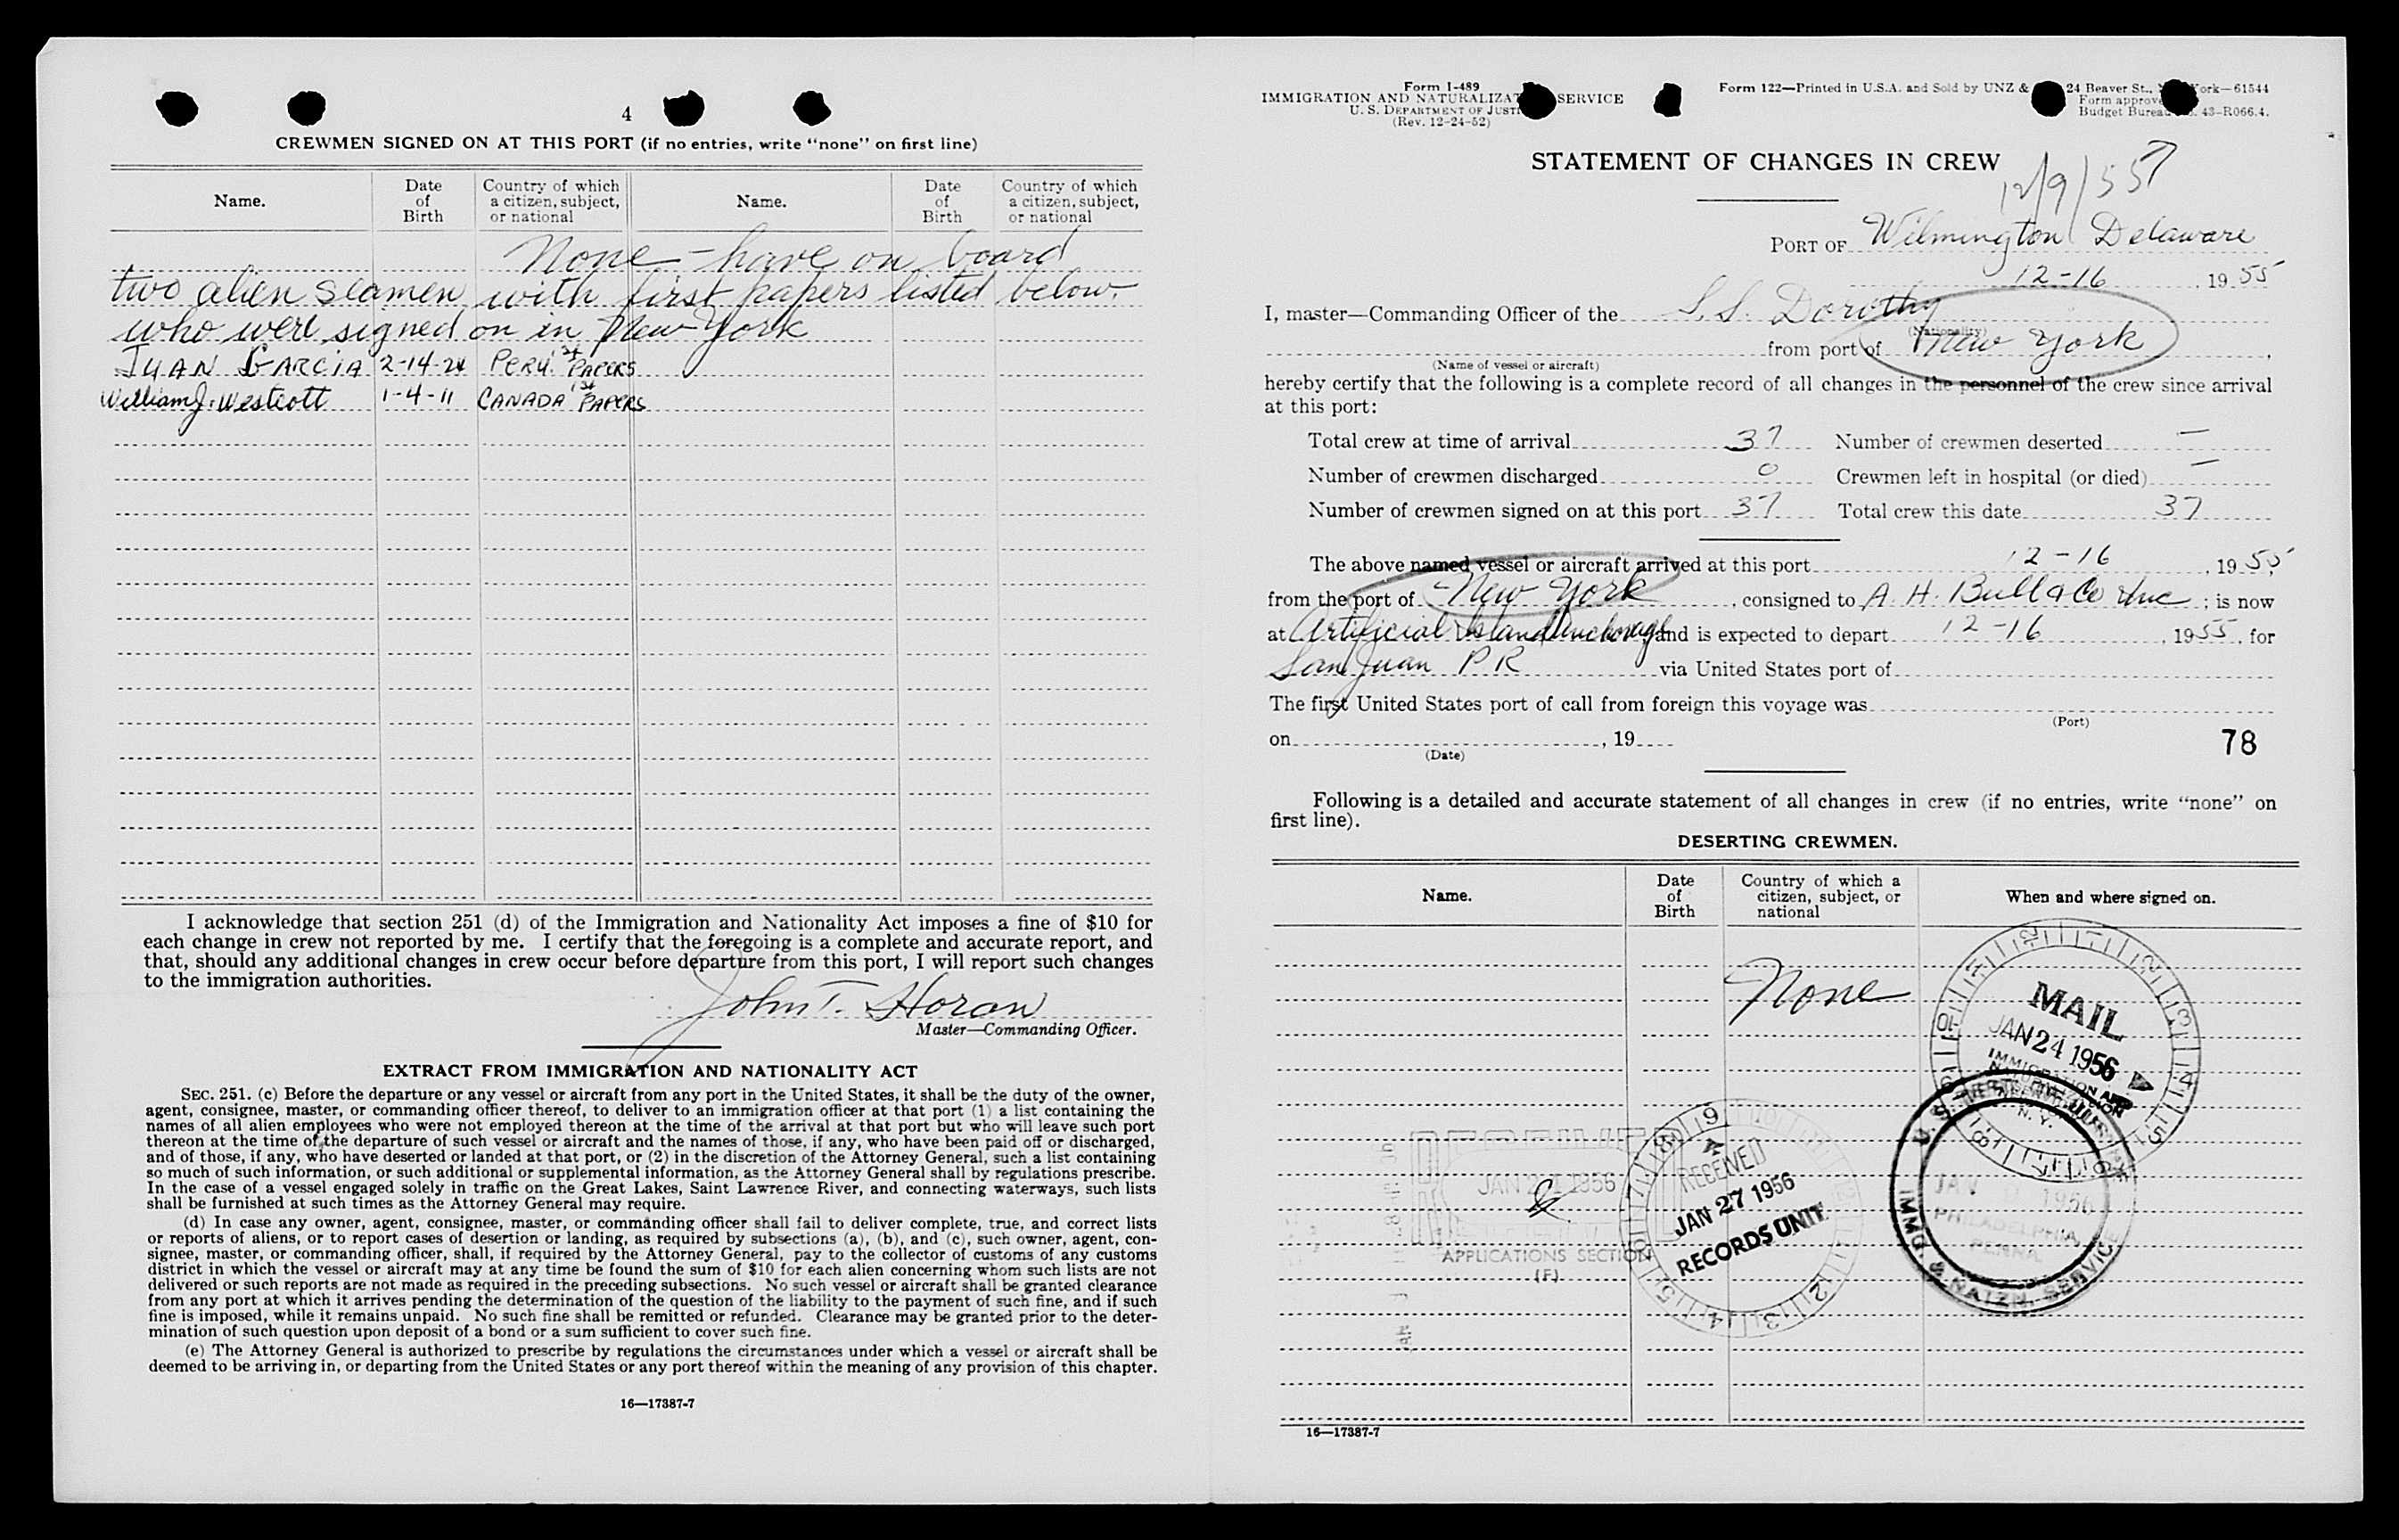 4
CREWMEN SIGNED ON AT THIS PORT (if no entries, write “none” on first line)
Name. Date of Birth Country of which a citizen, subject, or national Name. Date of Birth Country of which a citizen, subject, or national
None - have on board
two alien seamen with first papers listed below.
who were signed on in New York
JUAN GARCIA 2-14-24 PERU. 1st PAPERS
William J. Westcott 1-4-11 CANADA 1st PAPERS
I acknowledge that section 251 (d) of the Immigration and Nationality Act imposes a fine of $10 for
each change in crew not reported by me. I certify that the foregoing is a complete and accurate report, and
that, should any additional changes in crew occur before departure from this port, I will report such changes
to the immigration authorities.
John T. Horan
Master—Commanding Officer.
EXTRACT FROM IMMIGRATION AND NATIONALITY ACT
SEC. 251. (c) Before the departure or any vessel or aircraft from any port in the United States, it shall be the duty of the owner,
agent, consignee, master, or commanding officer thereof, to deliver to an immigration officer at that port (1) a list containing the
names of all alien employees who were not employed thereon at the time of the arrival at that port but who will leave such port
thereon at the time of the departure of such vessel or aircraft and the names of those, if any, who have been paid off or discharged,
and of those, if any, who have deserted or landed at that port, or (2) in the discretion of the Attorney General, such a list containing
so much of such information, or such additional or supplemental information, as the Attorney General shall by regulations prescribe.
In the case of a vessel engaged solely in traffic on the Great Lakes, Saint Lawrence River, and connecting waterways, such lists
shall be furnished at such times as the Attorney General may require.
(d) In case any owner, agent, consignee, master, or commanding officer shall fail to deliver complete, true, and correct lists
or reports of aliens, or to report cases of desertion or landing, as required by subsections (a), (b), and (c), such owner, agent, con-
signee, master, or commanding officer, shall, if required by the Attorney General, pay to the collector of customs of any customs
district in which the vessel or aircraft may at any time be found the sum of $10 for each alien concerning whom such lists are not
delivered or such reports are not made as required in the preceding subsections. No such vessel or aircraft shall be granted clearance
from any port at which it arrives pending the determination of the question of the liability to the payment of such fine, and if such
fine is imposed, while it remains unpaid. No such fine shall be remitted or refunded. Clearance may be granted prior to the deter-
mination of such question upon deposit of a bond or a sum sufficient to cover such fine.
(e) The Attorney General is authorized to prescribe by regulations the circumstances under which a vessel or aircraft shall be
deemed to be arriving in, or departing from the United States or any port thereof within the meaning of any provision of this chapter.
16—17387-7
Form I-489
IMMIGRATION AND NATURALIZAT SERVICE
U. S. DEPARTMENT OF JUSTI
(Rev. 12-24-52)
Form 122—Printed in U.S.A. and Sold by UNZ & 24 Beaver St., N ork—61544
Form approve
Budget Bureau 43-R066.4.
STATEMENT OF CHANGES IN CREW
12/9/55
PORT OF Wilmington Delaware
12-16, 1955
I, master—Commanding Officer of the S.S. Dorothy
(Nationality)
from port of New York,
(Name of vessel or aircraft)
hereby certify that the following is a complete record of all changes in the personnel of the crew since arrival
at this port:
Total crew at time of arrival 37 Number of crewmen deserted —
Number of crewmen discharged 0 Crewmen left in hospital (or died) —
Number of crewmen signed on at this port 37 Total crew this date 37
The above named vessel or aircraft arrived at this port 12-16, 1955,
from the port of New York, consigned to A. H. Bull & Co Inc; is now
at Artificial Island Anchorage and is expected to depart 12-16, 1955, for
San Juan P R via United States port of
The first United States port of call from foreign this voyage was
(Port)
on , 19
(Date)
78
Following is a detailed and accurate statement of all changes in crew (if no entries, write “none” on
first line).
DESERTING CREWMEN.
Name. Date of Birth Country of which a citizen, subject, or national When and where signed on.
None
MAIL
JAN 24 1956
IMMIGRATION AND
N. Y.
RECEIVED
JAN 27 1956
RECORDS UNIT
APPLICATIONS SECTION
(F)
U. S.
JAN 1956
PHILADELPHIA,
PENNA.
IMMG. & NATZN. SERVICE
16—17387-7